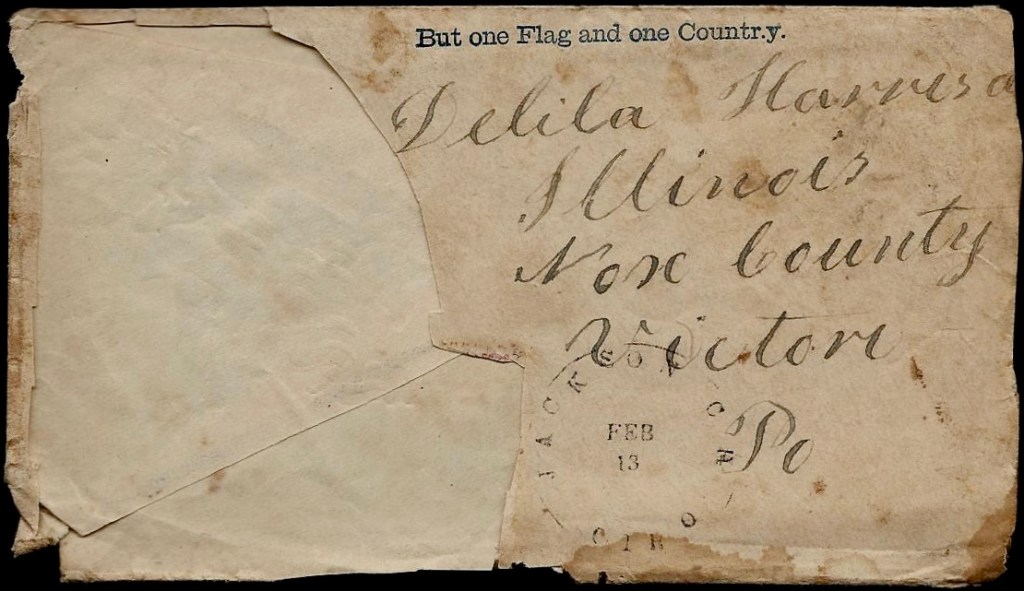 But one Flag and one Country.
Delila Harriso
Illinois
Nox County
Victori
Po
JACKSON C H OHIO
FEB
13